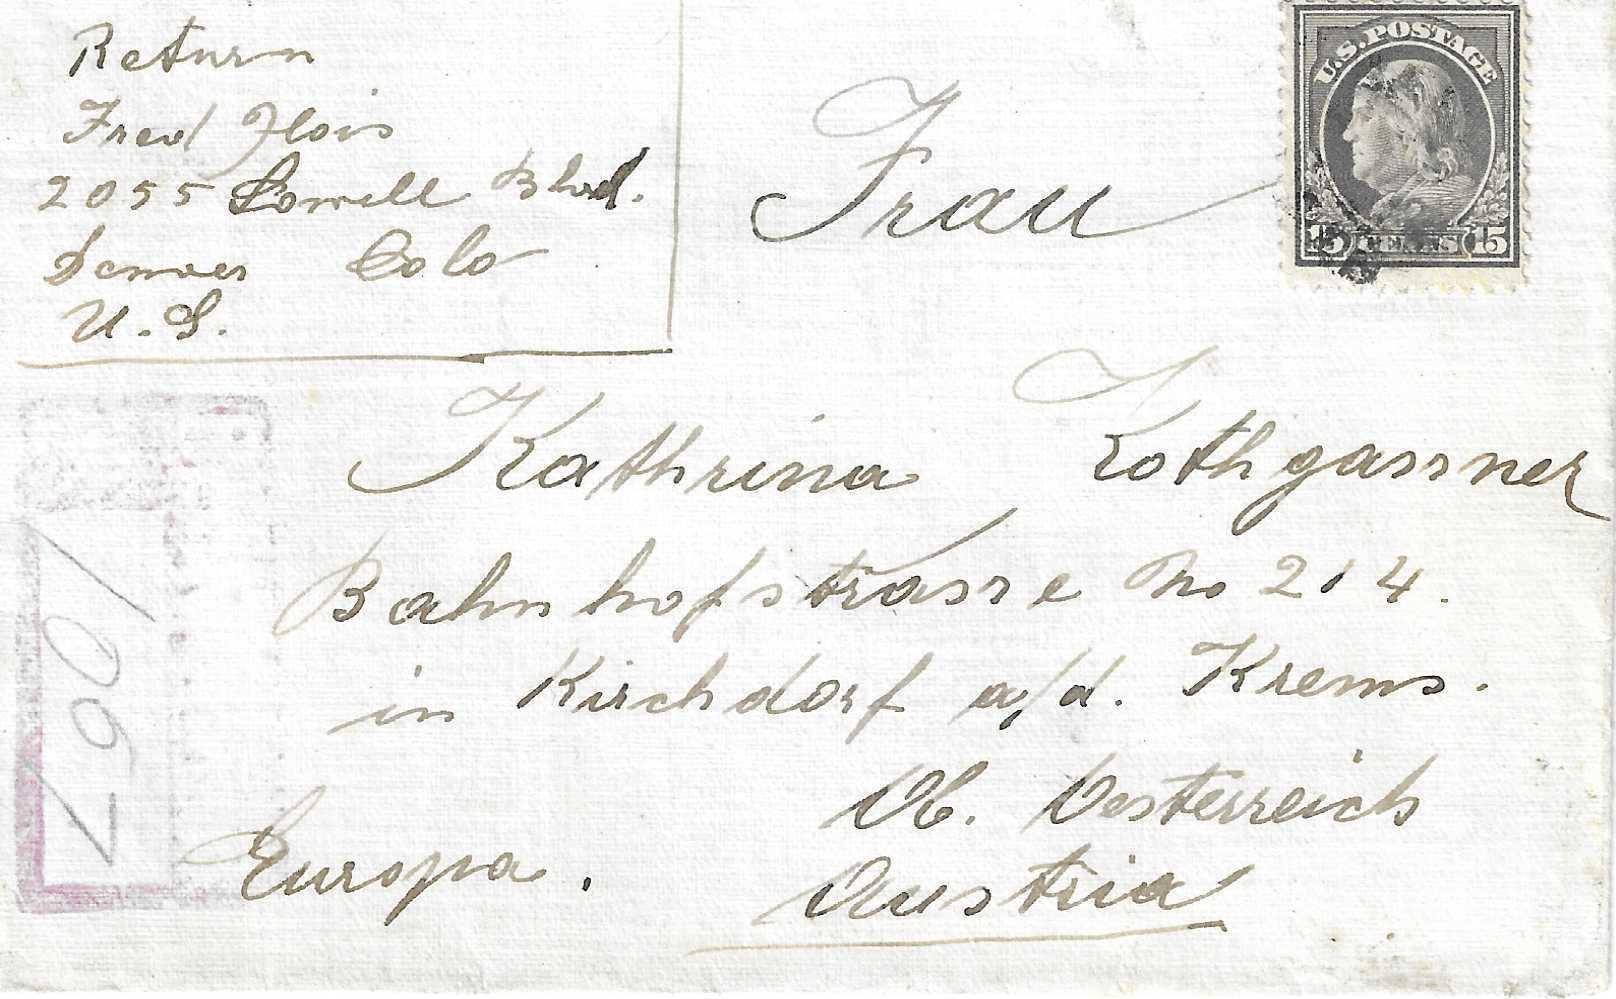 Return
Fred Flois
2055 Lowell Blvd.
Denver Colo
U.S.
U.S. POSTAGE
15 CENTS 15
Frau
Kathrina Kothgassner
Bahnhofstrasse No 214.
in Kirchdorf a/d. Krems.
Ob. Oesterreich
Europa.
Austria
1067